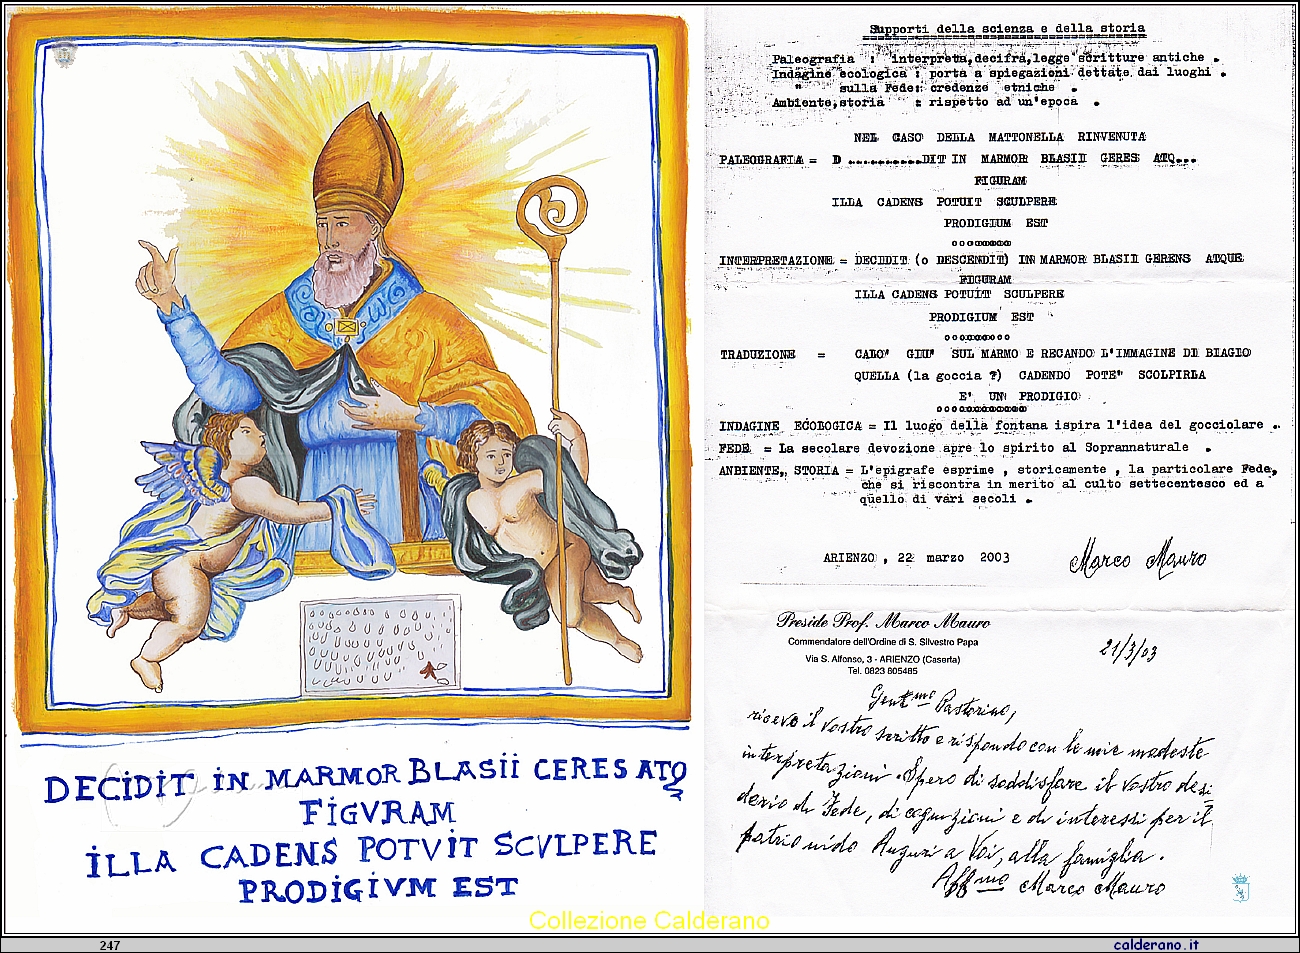 DECIDIT IN MARMOR BLASII CERES ATQ
FIGVRAM
ILLA CADENS POTVIT SCVLPERE
PRODIGIVM EST
Supporti della scienza e della storia
Paleografia : interpreta,decifra,legge scritture antiche .
Indagine ecologica : porta a spiegazioni dettate dai luoghi .
" sulla Fede: credenze etniche .
Ambiente,storia : rispetto ad un'epoca .
NEL CASO DELLA MATTONELLA RINVENUTA
PALEOGRAFIA = D ...........DIT IN MARMOR BLASII GERES ATQ...
FIGURAM
ILLA CADENS POTUIT SCULPERE
PRODIGIUM EST
INTERPRETAZIONE = DECIDIT (o DESCENDIT) IN MARMOR BLASII GERENS ATQUE
FIGURAM
ILLA CADENS POTUIT SCULPERE
PRODIGIUM EST
TRADUZIONE = CALO' GIU' SUL MARMO E RECANDO L'IMMAGINE DI BIAGIO
QUELLA (la goccia ?) CADENDO POTE' SCOLPIRLA
E' UN PRODIGIO
INDAGINE ECOLOGICA = Il luogo della fontana ispira l'idea del gocciolare .
FEDE = La secolare devozione apre lo spirito al Soprannaturale .
ANBIENTE, STORIA = L'epigrafe esprime , storicamente , la particolare Fede,
che si riscontra in merito al culto settecentesco ed a
quello di vari secoli .
ARIENZO , 22 marzo 2003 Marco Mauro
Preside Prof. Marco Mauro
Commendatore dell'Ordine di S. Silvestro Papa
Via S. Alfonso, 3 - ARIENZO (Caserta)
Tel. 0823 805485
21/3/03
Gent.mo Pastorino,
ricevo il vostro scritto e rispondo con le mie modeste
interpretazioni. Spero di soddisfare il vostro desi
derio di Fede, di cognizioni e di interessi per il
patrio nido Auguri a Voi, alla famiglia.
Aff.mo Marco Mauro
Collezione Calderano
247
calderano.it